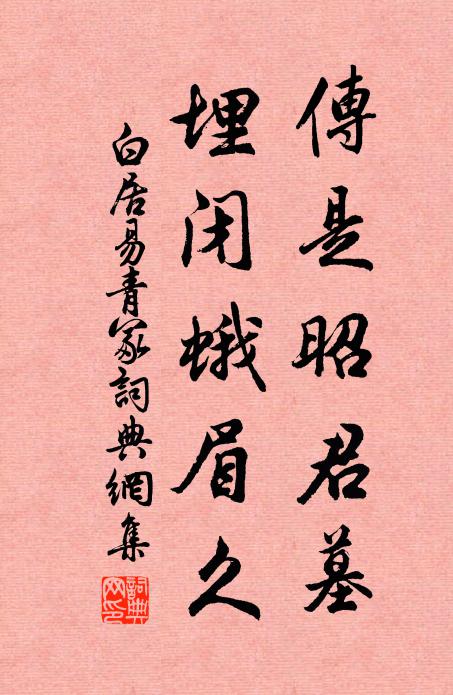 傳是昭君墓
埋闭蛾眉久
白居易青冢詞典網集
詞典
网印